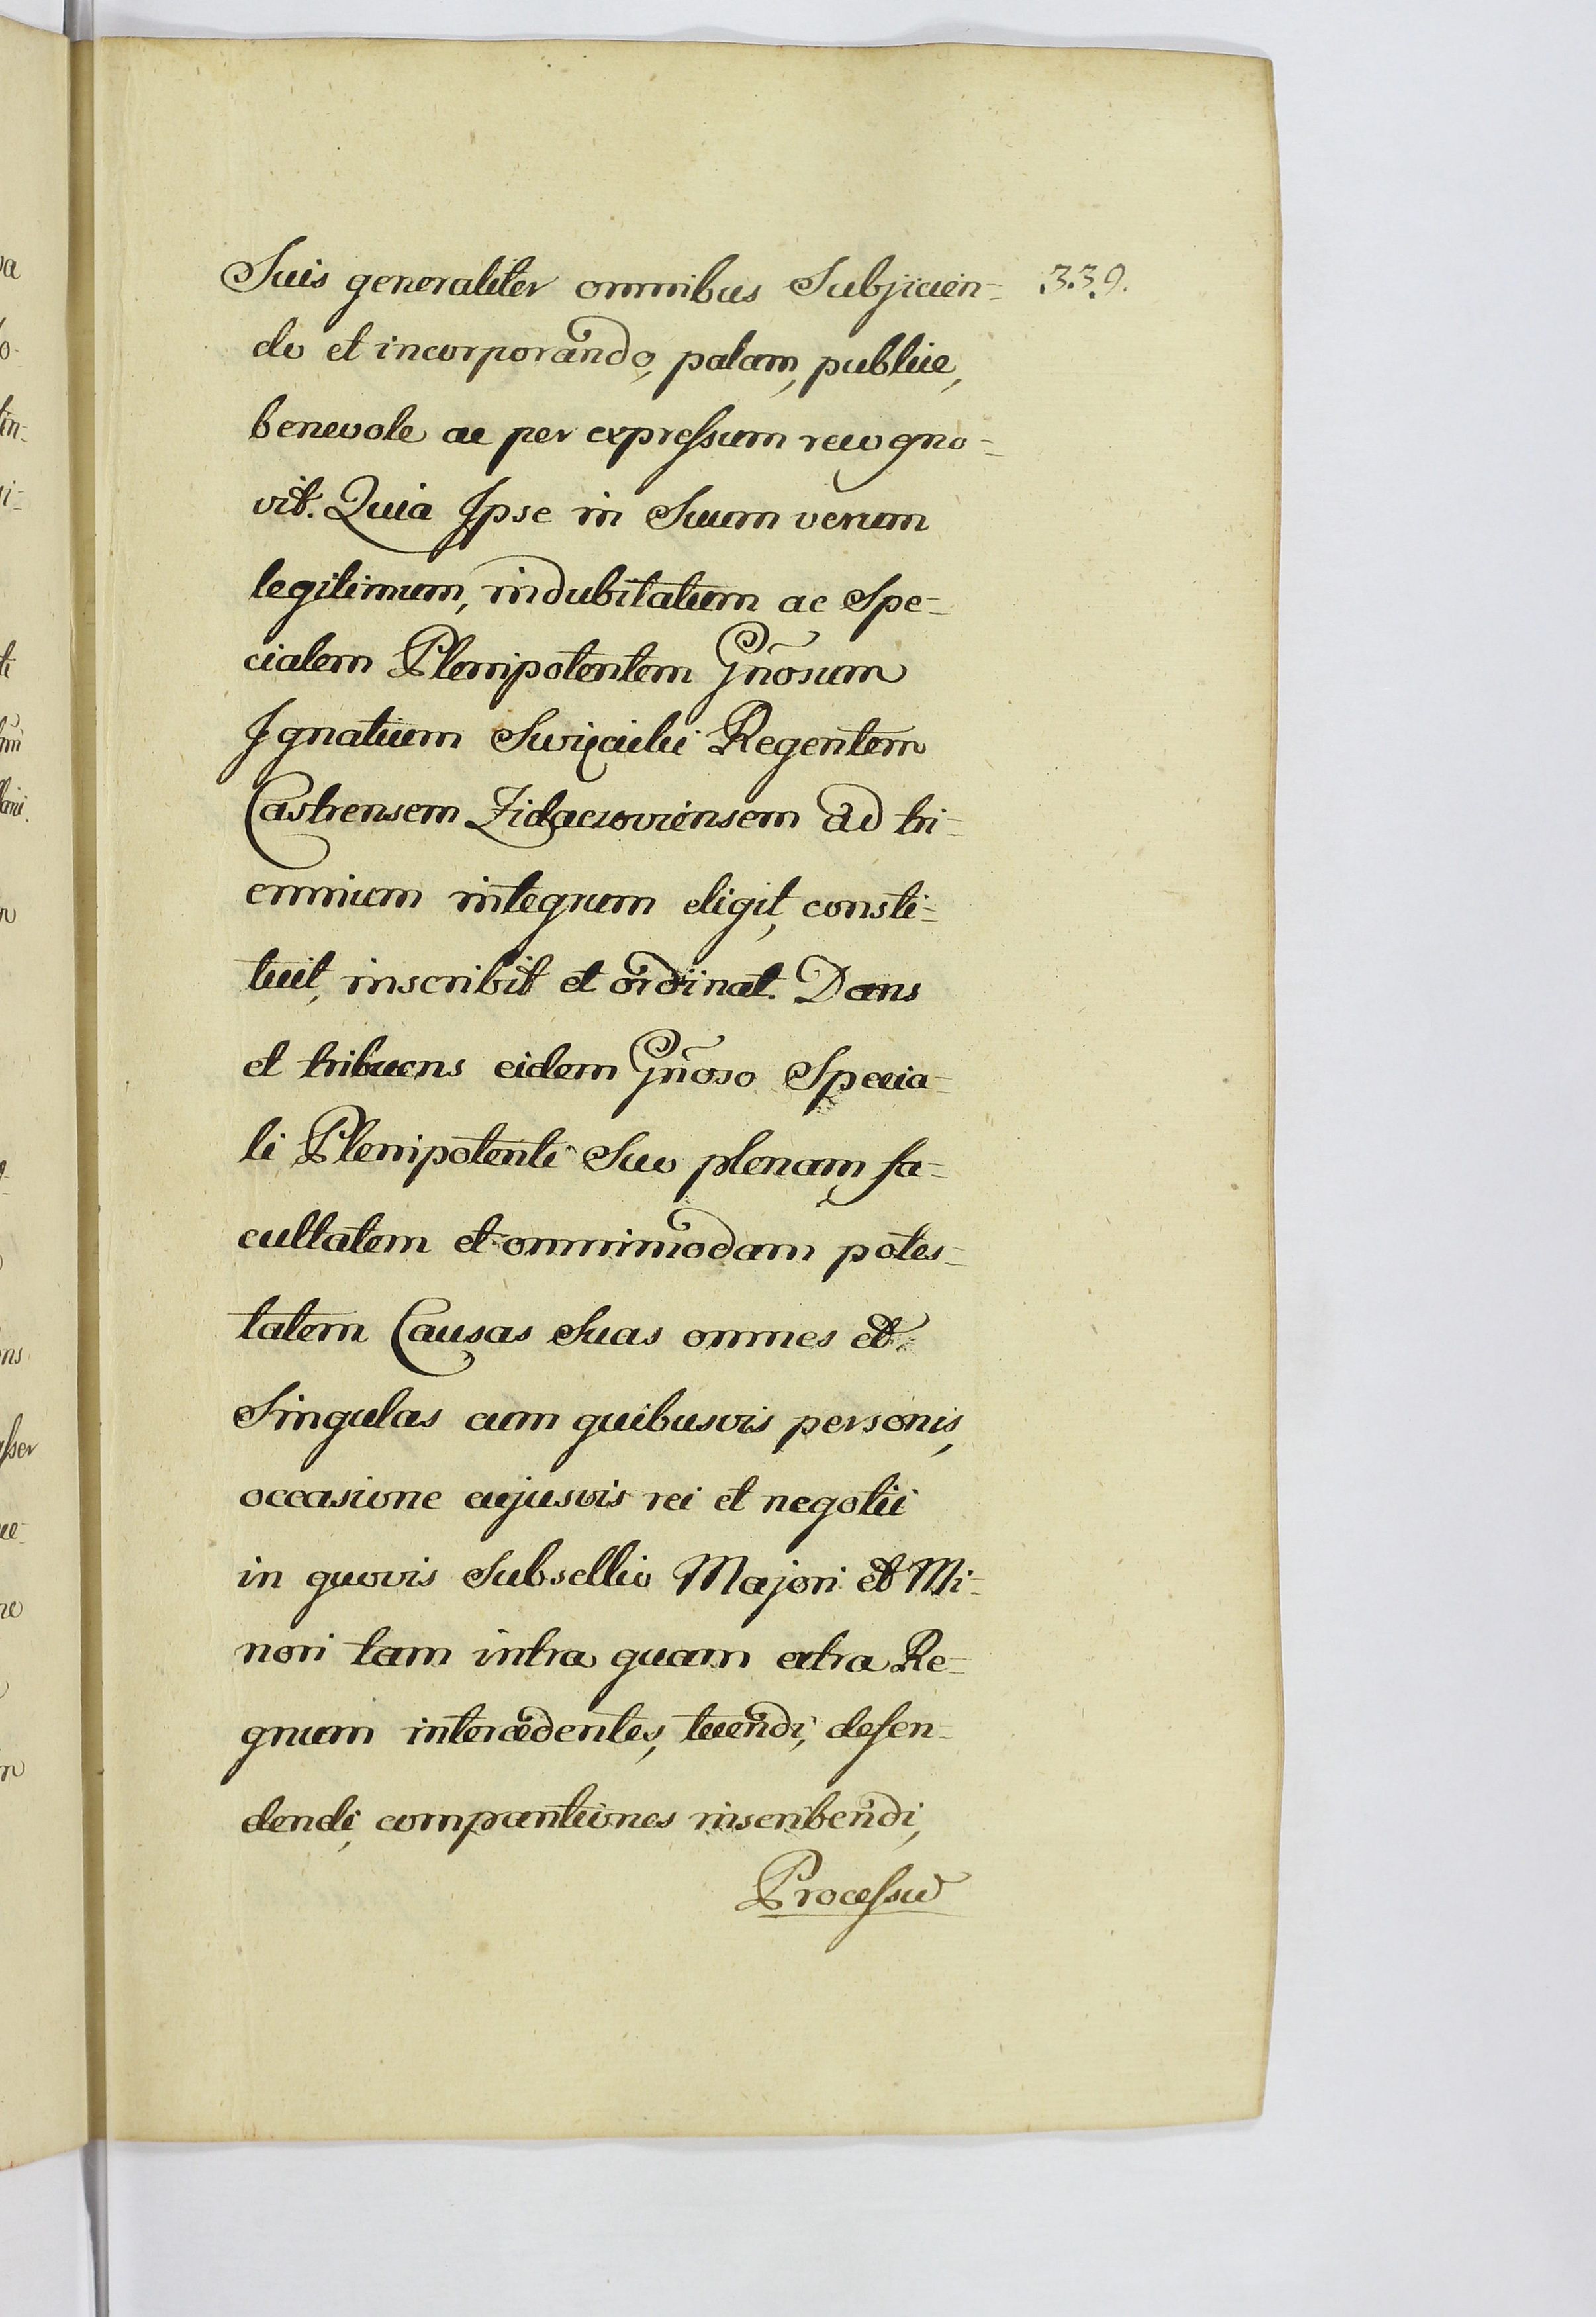 339.
Suis generaliter omnibus Subjicien-
do et incorporando, palam, publice,
benevole ac per expressum recogno-
vit. Quia Ipse in Suum verum
legitimum, indubitatum ac Spe-
cialem Plenipotentem Gñosum
Ignatium Regentem
Castrensem Zidacroviensem ad tri-
ennium integrum eligit, consti-
tuit, inscribit et ordinat. Dans
et tribuens eidem Gñoso Specia-
li Plenipotenti Suo plenam fa-
cultatem et omnimodam potes-
tatem Causas Suas omnes et
Singulas cum quibusvis personis,
occasione cujusvis rei et negotii
in quovis Subsellio Majori et Mi-
nori tam intra quam extra Re-
gnum intercedentes, tuendi, defen-
dendi, comparitiones inscribendi,
Processus